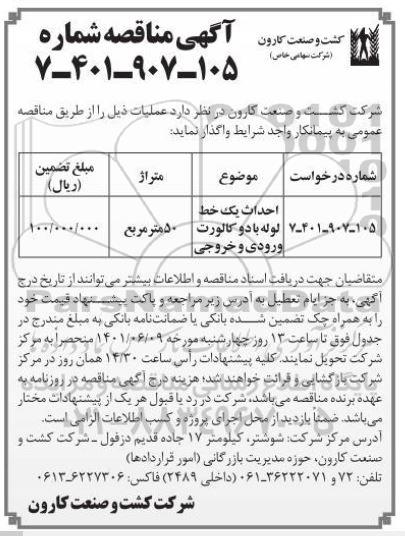 کشت و صنعت کارون
(شرکت سهامی خاص)
آگهی مناقصه شماره
۱۰۵-۹۰۷-۴۰۱-۷
شرکت کشت و صنعت کارون در نظر دارد عملیات ذیل را از طریق مناقصه
عمومی به پیمانکار واجد شرایط واگذار نماید:
شماره درخواست موضوع متراژ مبلغ تضمین (ریال)
۱۰۵-۹۰۷-۴۰۱-۷ احداث یک خط لوله با دو کالورت ورودی و خروجی ۵۰ مترمربع ۱۰۰/۰۰۰/۰۰۰
متقاضیان جهت دریافت اسناد مناقصه و اطلاعات بیشتر می‌توانند از تاریخ درج
آگهی، به جز ایام تعطیل به آدرس زیر مراجعه و پاکت پیشنهاد قیمت خود
را به همراه چک تضمین شده بانکی یا ضمانت‌نامه بانکی به مبلغ مندرج در
جدول فوق تا ساعت ۱۳ روز چهارشنبه مورخه ۱۴۰۱/۰۶/۰۹ منحصراً به مرکز
شرکت تحویل نمایند. کلیه پیشنهادات رأس ساعت ۱۴/۳۰ همان روز در مرکز
شرکت بازگشایی و قرائت خواهند شد؛ هزینه درج آگهی مناقصه در روزنامه به
عهده برنده مناقصه می‌باشد، شرکت در رد یا قبول هر یک از پیشنهادات مختار
می‌باشد. ضمناً بازدید از محل اجرای پروژه و کسب اطلاعات الزامی است.
آدرس مرکز شرکت: شوشتر، کیلومتر ۱۷ جاده قدیم دزفول ـ شرکت کشت و
صنعت کارون، حوزه مدیریت بازرگانی (امور قراردادها)
تلفن: ۷۲ و ۳۶۲۲۲۰۷۱-۰۶۱ (داخلی ۲۴۸۹) فاکس: ۶۲۲۷۳۰۶-۰۶۱۳
شرکت کشت و صنعت کارون